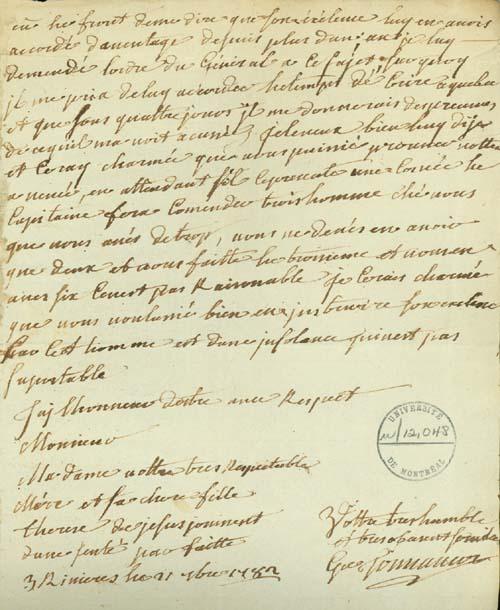 eü le front deme dire que son exelence luy en avois
accordé davantage depuis plus dun an je luy
demendé lordre du Général a ce sujet surquoy
jl me pria deluy accorder letemps dé Crire aquebec
et que sous quattre jours jl me donnerois des preuves
dece quil ma voit a cuséz, Jeleveux bien luy dije
et Ceray charmée que vous puissié prouver vottre
a vencée, en attendant sil ceprezente une Corvée le
Capitaine fera Comender trois homme ché vous
que vous avés detrop, vous ne devés en avoir
que deux et vous faitte le troisieme et vous en
avés six Cenest pas Raisonnable je Cerais charmée
que vous voulussié bien en jnstruire son exelence
Car Cest homme est dune jnsolance quinest pas
suportable
Jai Lhonneur destre avec Respect
Monsieur
Madame vottre tres Respectable
Mére et sa chere fille
therese de jesus jouissent
dune senté par faitte
3 Rivieres le 21 1782
Vottre tres humble
et tres obeissent
UNIVERSITÉ
12,048
DE MONTRÉAL